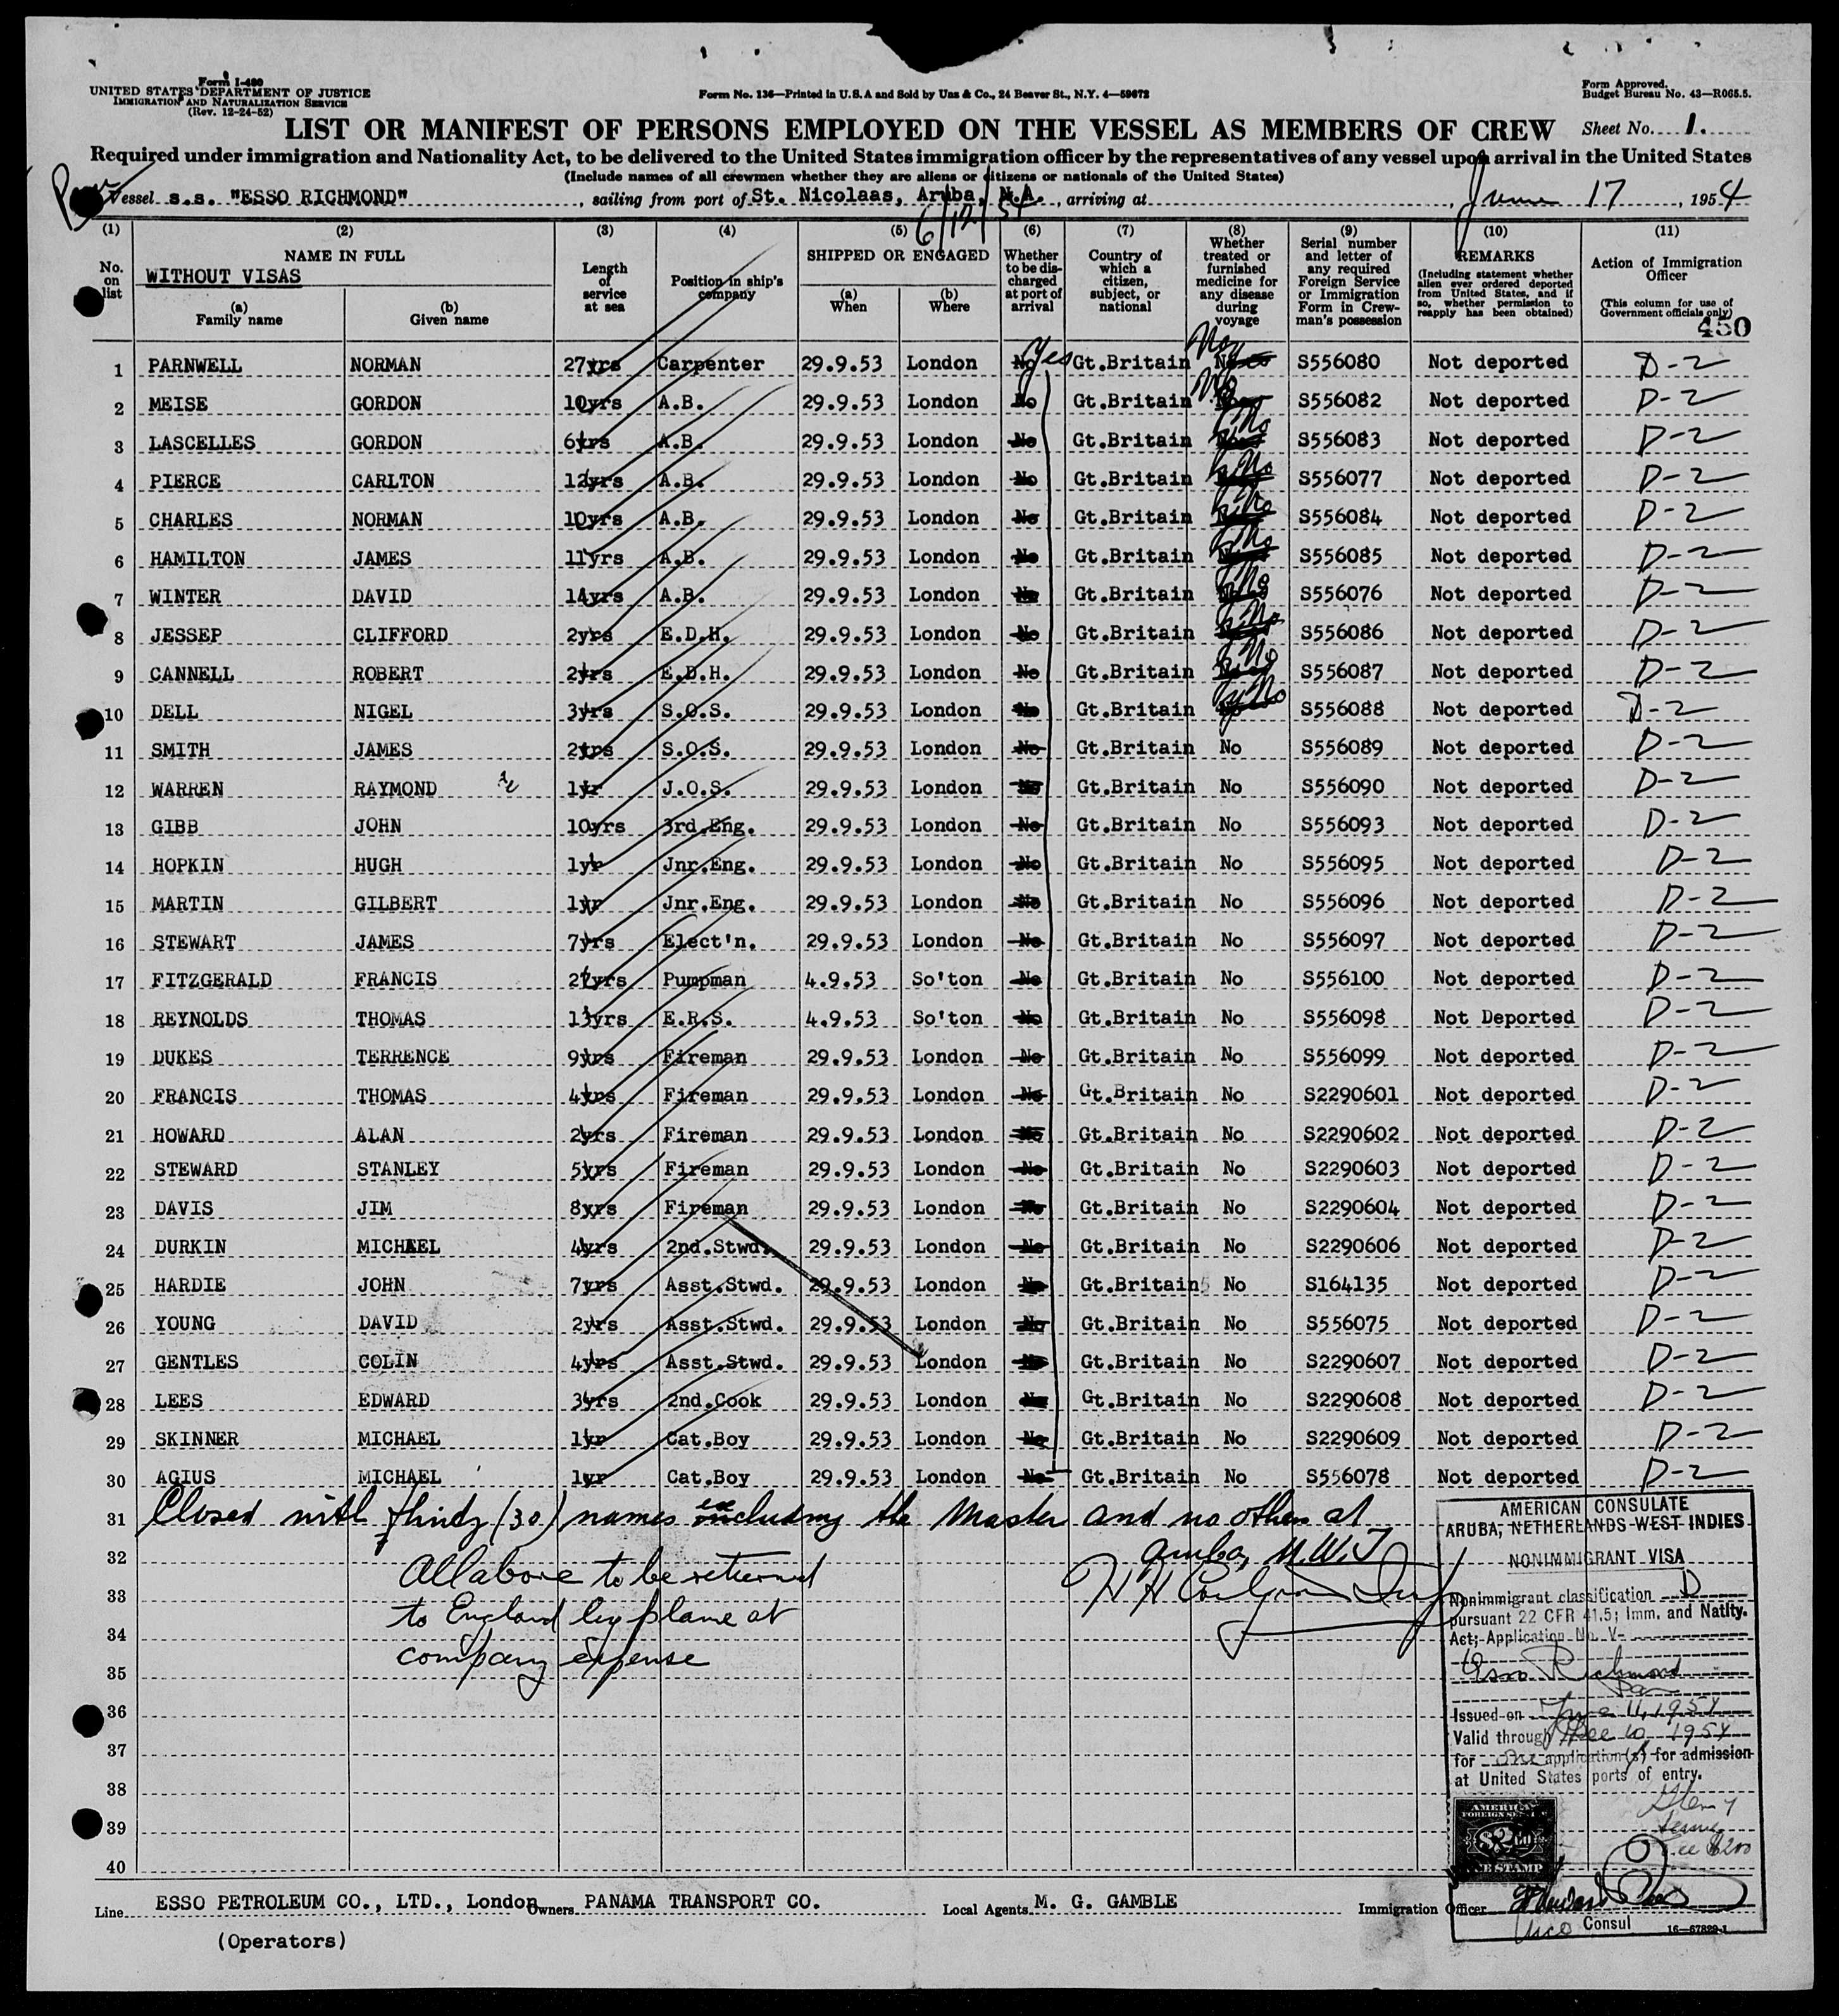 Form I-480
UNITED STATES DEPARTMENT OF JUSTICE
IMMIGRATION AND NATURALIZATION SERVICE
(Rev. 12-24-52)
Form No. 136—Printed in U.S.A and Sold by Unz & Co., 24 Beaver St., N.Y. 4—59672
Form Approved.
Budget Bureau No. 43—R065.5.
LIST OR MANIFEST OF PERSONS EMPLOYED ON THE VESSEL AS MEMBERS OF CREW Sheet No. 1.
Required under immigration and Nationality Act, to be delivered to the United States immigration officer by the representatives of any vessel upon arrival in the United States
(Include names of all crewmen whether they are aliens or citizens or nationals of the United States)
Vessel s.s. "ESSO RICHMOND", sailing from port of St. Nicolaas, Aruba, N.A., arriving at , June 17, 1954
6/12/54
(1) (2) (3) (4) (5) (6) (7) (8) (9) (10) (11)
No. on list
NAME IN FULL
WITHOUT VISAS
(a) Family name
(b) Given name
Length of service at sea
Position in ship's company
SHIPPED OR ENGAGED
(a) When
(b) Where
Whether to be discharged at port of arrival
Country of which a citizen, subject, or national
Whether treated or furnished medicine for any disease during voyage
Serial number and letter of any required Foreign Service or Immigration Form in Crewman's possession
REMARKS
(Including statement whether alien ever ordered deported from United States, and if so, whether permission to reapply has been obtained)
Action of Immigration Officer
(This column for use of Government officials only)
450
1 PARNWELL NORMAN 27yrs Carpenter 29.9.53 London No Yes Gt.Britain No S556080 Not deported D-2
2 MEISE GORDON 10yrs A.B. 29.9.53 London No Gt.Britain No S556082 Not deported D-2
3 LASCELLES GORDON 6yrs A.B. 29.9.53 London No Gt.Britain No S556083 Not deported D-2
4 PIERCE CARLTON 12yrs A.B. 29.9.53 London No Gt.Britain No S556077 Not deported D-2
5 CHARLES NORMAN 10yrs A.B. 29.9.53 London No Gt.Britain No S556084 Not deported D-2
6 HAMILTON JAMES 11yrs A.B. 29.9.53 London No Gt.Britain No S556085 Not deported D-2
7 WINTER DAVID 14yrs A.B. 29.9.53 London No Gt.Britain No S556076 Not deported D-2
8 JESSEP CLIFFORD 2yrs E.D.H. 29.9.53 London No Gt.Britain No S556086 Not deported D-2
9 CANNELL ROBERT 2yrs E.D.H. 29.9.53 London No Gt.Britain No S556087 Not deported D-2
10 DELL NIGEL 3yrs S.O.S. 29.9.53 London No Gt.Britain No S556088 Not deported D-2
11 SMITH JAMES 2yrs S.O.S. 29.9.53 London No Gt.Britain No S556089 Not deported D-2
12 WARREN RAYMOND 1yr J.O.S. 29.9.53 London No Gt.Britain No S556090 Not deported D-2
13 GIBB JOHN 10yrs 3rd.Eng. 29.9.53 London No Gt.Britain No S556093 Not deported D-2
14 HOPKIN HUGH 1yr Jnr.Eng. 29.9.53 London No Gt.Britain No S556095 Not deported D-2
15 MARTIN GILBERT 1yr Jnr.Eng. 29.9.53 London No Gt.Britain No S556096 Not deported D-2
16 STEWART JAMES 7yrs Elect'n. 29.9.53 London No Gt.Britain No S556097 Not deported D-2
17 FITZGERALD FRANCIS yrs Pumpman 4.9.53 So'ton No Gt.Britain No S556100 Not deported D-2
18 REYNOLDS THOMAS 13yrs E.R.S. 4.9.53 So'ton No Gt.Britain No S556098 Not Deported D-2
19 DUKES TERRENCE 9yrs Fireman 29.9.53 London No Gt.Britain No S556099 Not deported D-2
20 FRANCIS THOMAS 4yrs Fireman 29.9.53 London No Gt.Britain No S2290601 Not deported D-2
21 HOWARD ALAN 2yrs Fireman 29.9.53 London No Gt.Britain No S2290602 Not deported D-2
22 STEWARD STANLEY 5yrs Fireman 29.9.53 London No Gt.Britain No S2290603 Not deported D-2
23 DAVIS JIM 8yrs Fireman 29.9.53 London No Gt.Britain No S2290604 Not deported D-2
24 DURKIN MICHAEL 4yrs 2nd.Stwd. 29.9.53 London No Gt.Britain No S2290606 Not deported D-2
25 HARDIE JOHN 7yrs Asst.Stwd. 29.9.53 London No Gt.Britain No S164135 Not deported D-2
26 YOUNG DAVID 2yrs Asst.Stwd. 29.9.53 London No Gt.Britain No S556075 Not deported D-2
27 GENTLES COLIN 4yrs Asst.Stwd. 29.9.53 London No Gt.Britain No S2290607 Not deported D-2
28 LEES EDWARD 3yrs 2nd.Cook 29.9.53 London No Gt.Britain No S2290608 Not deported D-2
29 SKINNER MICHAEL 1yr Cat.Boy 29.9.53 London No Gt.Britain No S2290609 Not deported D-2
30 AGIUS MICHAEL 1yr Cat.Boy 29.9.53 London No Gt.Britain No S556078 Not deported D-2
31 Closed with thirty (30) names excluding the Master and no others at
32 Aruba, N.W.I
All above to be returned
33 to England by plane at
34 company expense
35
36
37
38
39
40
AMERICAN CONSULATE
ARUBA, NETHERLANDS WEST INDIES
NONIMMIGRANT VISA
Nonimmigrant classification D
pursuant 22 CFR 41.5; Imm. and Natlty.
Act; Application No. V-
Esso Richmond
Pan
Issued on June 11, 1954
Valid through Dec 10 1954
for one application(s) for admission
at United States ports of entry.
AMERICAN
FOREIGN SERVICE
FEE STAMP
Consul
16—67829-1
Line ESSO PETROLEUM CO., LTD., London Owners PANAMA TRANSPORT CO. Local Agents M. G. GAMBLE Immigration Officer
(Operators)